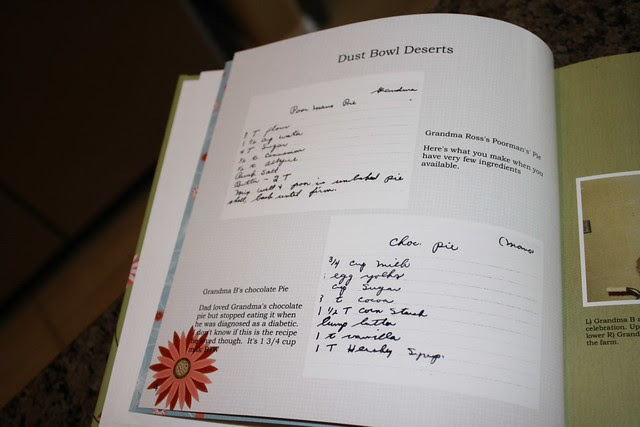 Dust Bowl Deserts
Grandma
Poor mans Pie
T flour
1 ½ cup water
T Sugar
½ t Cinnamon
t allspice
Pinch Salt
Butter - 2 T
Mix well & pour in unbaked pie
shell bake until firm.
Grandma Ross's Poorman's' Pie
Here's what you make when you
have very few ingredients
available.
Choc. pie
3/4 cup milk
egg yolks
cup Sugar
3 t cocoa
1 ½ T Corn Starch
lump butter
1 t vanilla
1 T Hershey Syrup.
Grandma B's chocolate Pie
Dad loved Grandma's chocolate
pie but stopped eating it when
he was diagnosed as a diabetic.
don't know if this is the recipe
he loved though. It's 1 3/4 cup
milk BTW
L) Grandma B
celebration. Up
lower R) Grand
the farm.